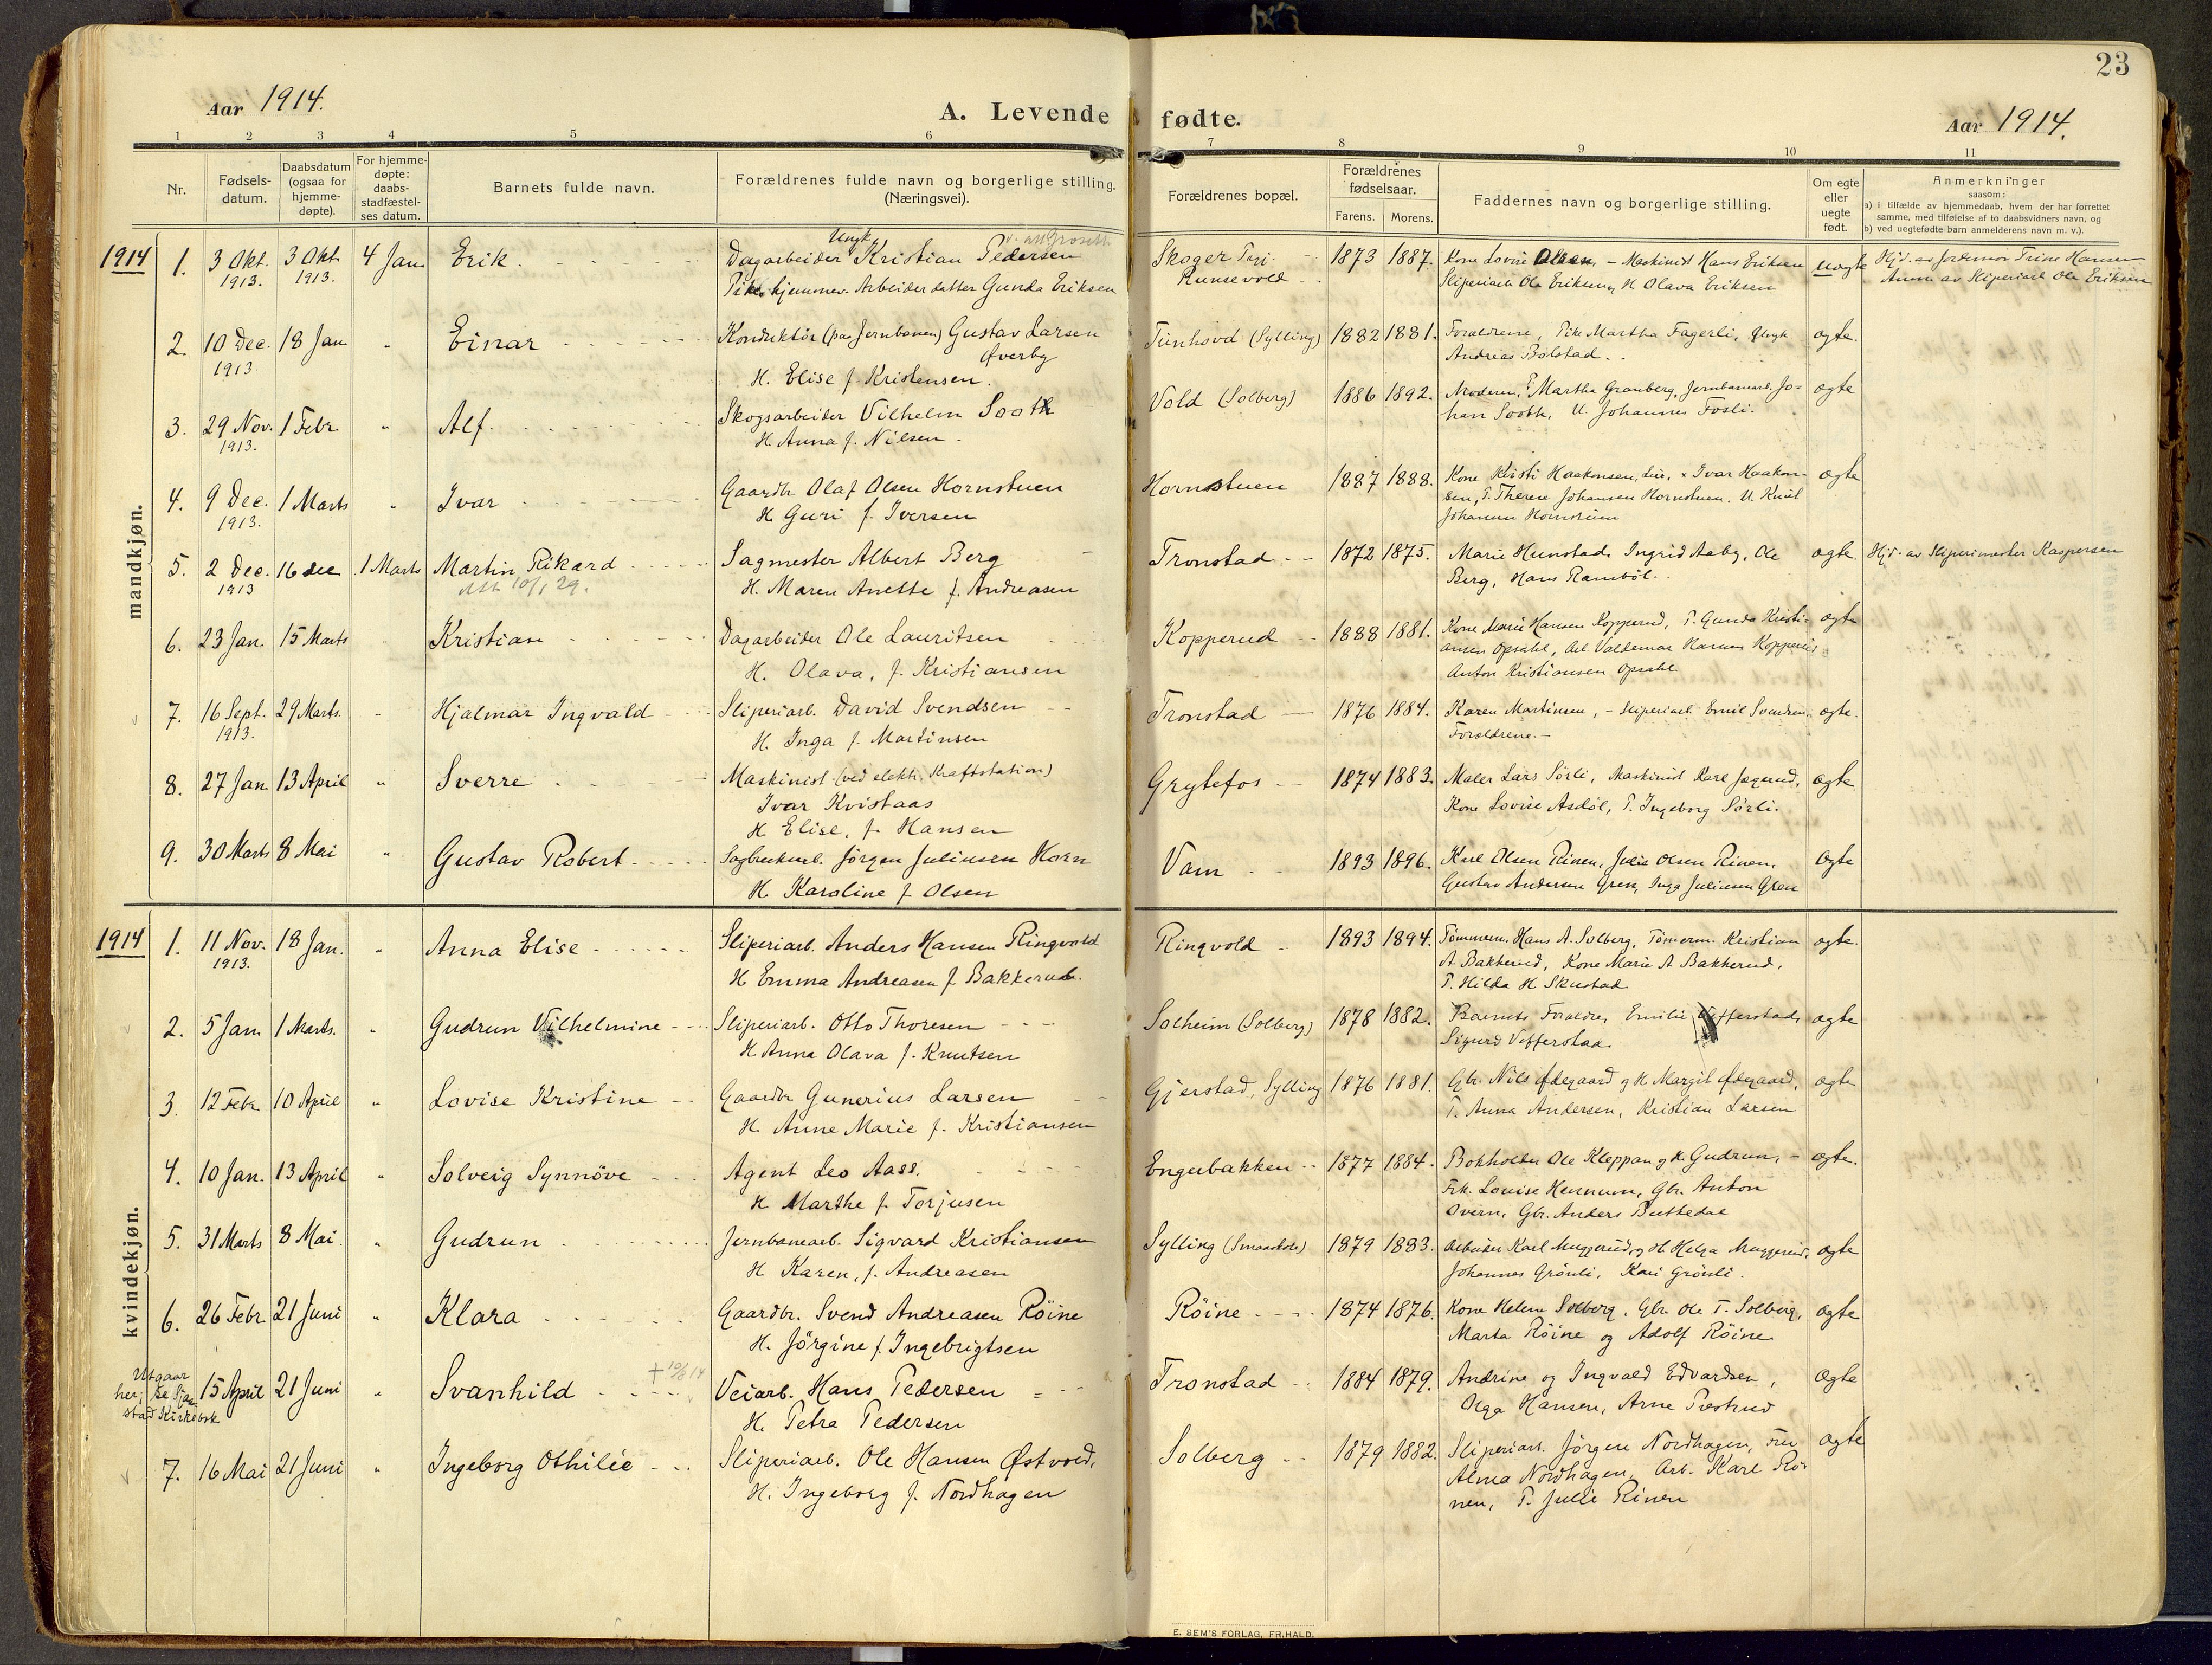 23
Aar 1914.
A. Levende fødte.
Aar 1914.
1 2 3 4 5 6 7 8 9 10 11
Nr.
Fødsels-
datum.
Daabsdatum
(ogsaa for
hjemme-
døpte).
For hjemme-
døpte:
daabs-
stadfæstel-
ses datum.
Barnets fulde navn.
Forældrenes fulde navn og borgerlige stilling.
(Næringsvei).
Forældrenes bopæl.
Forældrenes
fødselsaar.
Farens. Morens.
Faddernes navn og borgerlige stilling.
Om egte
eller
uegte
født.
Anmerkninger
saasom:
a) i tilfælde av hjemmedaab, hvem der har forrettet
samme, med tilføielse af to daabsvidners navn, og
b) ved uegtefødte barn anmelderens navn m. v.).
mandkjøn.
1914 1. 3 Okt. 1913. 3 Okt. 1913. 4 Jan. Erik.
Ungk.
Dagarbeider Kristian Pedersen
Pike hjemmev. Arbeider datter Gunda Eriksen
Skoger
Runsevold
1873 1887.
Kone Lovise Olsen – Maskinist Hans Eriksen
Sliperiarb. Ole Eriksen, H Olava Eriksen
uegte
Hjd. av Jordemor Trine Hansen
Anm. av Sliperiarb. Ole Eriksen
2. 10 Dec. 1913. 18 Jan " Einar
Konduktör (paa Jernbanen) Gustav Larsen
Øverby
H. Elise f. Kristensen.
Tunhovd (Sylling) 1882 1881.
Forældrene, Pike Martha Fagerli, Ungk
Andreas Bolstad.
ogte.
3. 29 Nov. 1913. 1 Febr. " Alf.
Skogsarbeider Vilhelm Sooth
H. Anna f. Nilsen.
Vold (Solberg) 1886 1892.
Moderen, P. Martha Granberg, Jernbanearb. Jo-
han Sooth, U. Johannes Fosli.
ogte
4. 9 Dec. 1913. 1 Marts " Ivar
Gaardbr. Olaf Olsen Hornstuen
H Guri f. Iversen
Hornstuen 1887 1888.
Kone Kristi Haakonsen, Lie, x Ivar Haakon-
sen, P. Therese Johansen Hornstuen. U. Knut
Johansen Hornstuen
ogte
5. 2 Dec. 1913 16 dec 1 Marts Martin Rikard
Att. 10/1 29.
Sagmester Albert Berg
H. Maren Anette f. Andreasen
Tronstad 1872 1875.
Marie Hunstad, Ingrid Aaby, Ole
Berg, Hans Ramböl.
ogte
Hjd. av Sliperimester Kaspersen
6. 23 Jan. 15 Marts Kristian
Dagarbeider Ole Lauritsen
H. Olava, f. Kristiansen
Kopperud 1888 1881.
Kone Marie Hansen Kopperud, P. Gunda Kristi-
ansen Opsahl, Arb Valdemar Hansen Kopperud
Anton Kristiansen Opsahl
ogte
7. 16 Sept. 1913. 29 Marts. " Hjalmar Ingvald
Sliperiarb. David Svendsen
H. Inga f. Martinsen
Tronstad 1876 1884.
Karen Martinsen, – Sliperiarb. Emil Svendsen
Forældrene. –
ogte.
8. 27 Jan 13 April " Sverre
Maskinist (ved elektr. Kraftstation)
Ivar Kvistaas
H Elise, f. Hansen
Grytefos 1874 1883.
Maler Lars Sörli, Maskinist Karl Jagerud,
Kone Lovise Asdöl, P. Ingeborg Sörli.
ogte
9. 30 Marts 8 Mai " Gustav Robert
Sagbruksarb. Jörgen Juliusen Horn
H. Karoline f. Olsen
Vam 1893 1896.
Karl Olsen Rinen, Julie Olsen Rinen,
Gustav Andersen Gren, Inga Juliusen Gren
ogte
kvindekjøn.
1914 1. 11 Nov. 1913. 18 Jan. " Anna Elise
Sliperiarb. Anders Hansen Ringvold
H Emma Andreasen f Bakkerud.
Ringvold 1893 1894.
Tömmerm. Hans A. Solberg, Tömerm. Kristian
A Bakkerud, Kone Marie A Bakkerud,
P. Hilda H Skustad
ogte.
2. 5 Jan. 1 Marts. " Gudrun Vilhelmine
Sliperiarb. Otto Thoresen
H Anna Olava f. Knutsen
Solheim (Solberg) 1878 1882.
Barnets Foraldre, Emilie Vefferstad,
Sigurd Vefferstad.
ogte
3. 12 Febr. 10 April " Lovise Kristine
Gaardbr Gunerius Larsen
H. Anne Marie f. Kristiansen
Gjerstad, Sylling 1876 1881.
Gbr. Nils Ødegaard og H Margit Ødegaard,
P. Anna Andersen, Kristian Larsen
ogte
4. 10 Jan. 13 April " Solveig Synnöve
Agent Leo Aass.
H Marthe f Torjusen
Engerbakken 1877 1884.
Bokholder Ole Kleppan og H. Gudrun, –
Frk. Louise Hennum, Gbr. Anton
Overn, Gbr. Anders Buttedal
ogte.
5. 31 Marts 8 Mai. " Gudrun
Jernbanearb. Sigvard Kristiansen
H Karen, f. Andreasen
Sylling 1879 1883.
Arbeider Karl Muggerud og H. Helga Muggerud,
Johannes Grönli, Kari Grönli.
ogte
6. 26 Febr. 21 Juni " Klara
Gaardbr. Svend Andreasen Röine
H. Jörgine f. Ingebrigtsen
Röine 1874 1876.
Kone Helene Solberg, Gbr. Ole T. Solberg,
Marta Röine og Adolf Röine
ogte
Utgaar
her; se Sjaa-
stad Kirkebok
15 April 21 Juni " Svanhild
+ 10/6 14
Veiarb. Hans Pedersen
H. Petra Pedersen
Tronstad 1884 1879.
Andrine og Ingvald Edvardsen,
Olga Hansen, Arne Præstrud
ogte
7. 16 Mai 21 Juni " Ingeborg Othilie
Sliperiarb. Ole Hansen Østvold,
H. Ingeborg f. Nordhagen
Solberg 1879 1882.
Sliperiarb. Jörgen Nordhagen, Fru
Alma Nordhagen, Arb. Karl Rö-
nen, P. Julie Rinen
ogte
E. SEM'S FORLAG, FR.HALD.